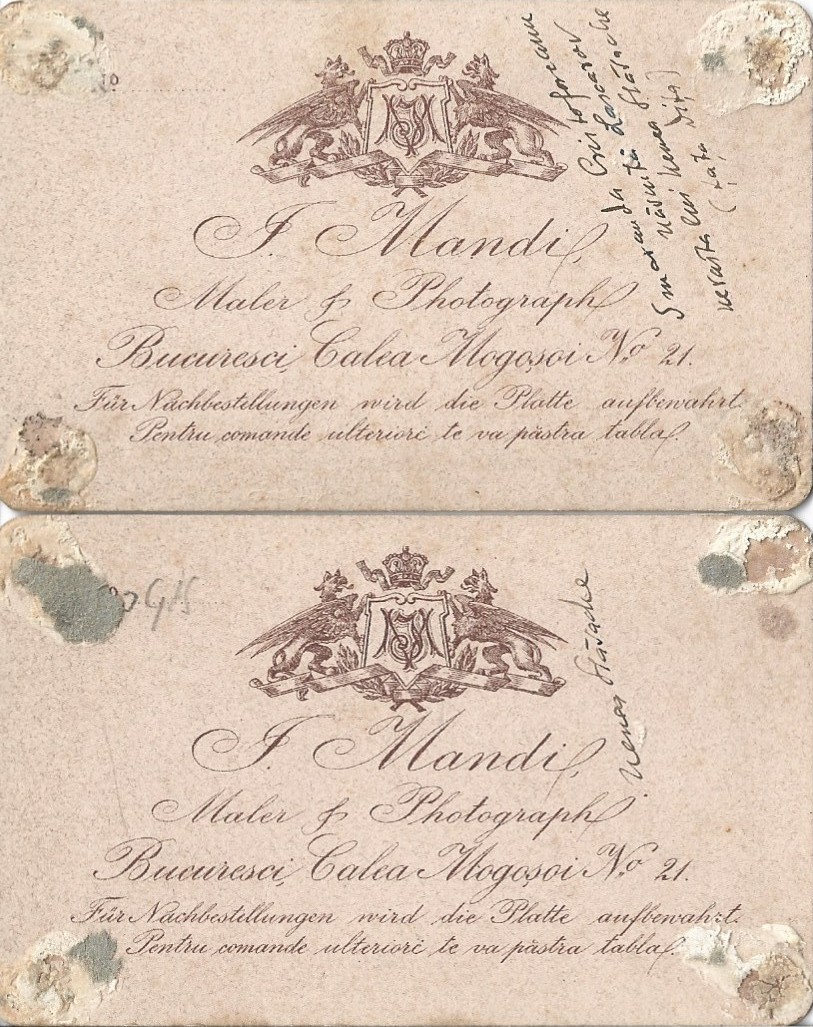 No
J. Mandi,
Maler & Photograph
Bucuresci, Calea Mogoșoi No 21.
Für Nachbestellungen wird die Platte aufbewahrt.
Pentru comande ulteriorĕ se va păstra tabla.
Smaranda Cristoforeanu
născută Lascarov
nenea Stávache
nevasta lui nenea
(țața Dița)
J. Mandi,
Maler & Photograph
Bucuresci, Calea Mogoșoi No 21.
Für Nachbestellungen wird die Platte aufbewahrt.
Pentru comande ulteriorĕ se va păstra tabla.
nenea Stávache